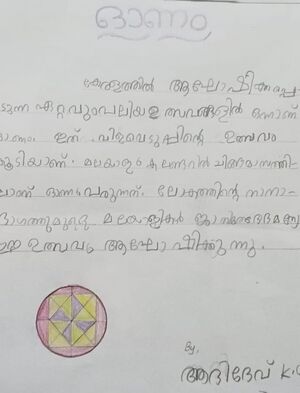 ഓണം
കേരളത്തിൽ ആഘോഷിക്കപ്പെ
ടുന്ന ഏറ്റവുംവലിയ ഉത്സവങ്ങളിൽ ഒന്നാണ്
ഓണം. ഇത് വിളവെടുപ്പിന്റെ ഉത്സവം
കൂടിയാണ്. മലയാളം കലണ്ടറിൽ ചിങ്ങമാസത്തി-
ലാണ് ഓണം വരുന്നത്. ലോകത്തിന്റെ നാനാ-
ഭാഗത്തുമുള്ള മലയാളികൾ ജാതിഭേദമന്യേ
ഈ ഉത്സവം ആഘോഷിക്കുന്നു.
By,
ആദിദേവ് K.